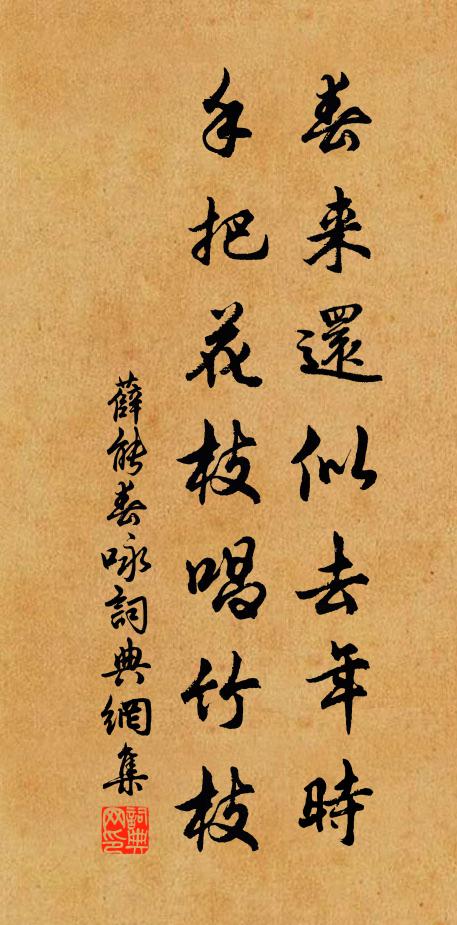 春来還似去年時
手把花枝唱竹枝
薛能春咏詞典網集
詞典网印